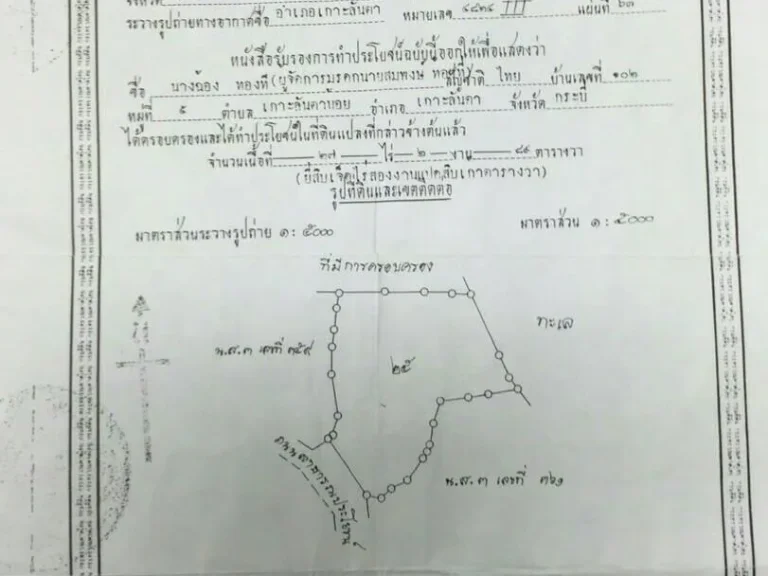 ระวางรูปถ่ายทางอากาศชื่อ อำเภอเกาะลันตา หมายเลข ๔๘๒๔ III แผ่นที่ ๖๓
หนังสือรับรองการทำประโยชน์ฉบับนี้ออกให้เพื่อแสดงว่า
ชื่อ นางฉ้อง ทองที่ (ผู้จัดการมรดกนายสมพงษ์ ทองที่) สัญชาติ ไทย บ้านเลขที่ ๑๐๒
หมู่ที่ ๕ ตำบล เกาะลันตาน้อย อำเภอ เกาะลันตา จังหวัด กระบี่
ได้ครอบครองและได้ทำประโยชน์ในที่ดินแปลงที่กล่าวข้างต้นแล้ว
จำนวนเนื้อที่ ๒๗ ไร่ ๒ งาน ๘๙ ตารางวา
(ยี่สิบเจ็ดไร่สองงานแปดสิบเก้าตารางวา)
รูปที่ดินและเขตติดต่อ
มาตราส่วนระวางรูปถ่าย ๑ : ๕๐๐๐ มาตราส่วน ๑ : ๕๐๐๐
ที่มีการครอบครอง
ทะเล
น.ส.๓ เลขที่ ๓๕๙
๒๕
ถนนสาธารณประโยชน์
น.ส.๓ เลขที่ ๓๖๑